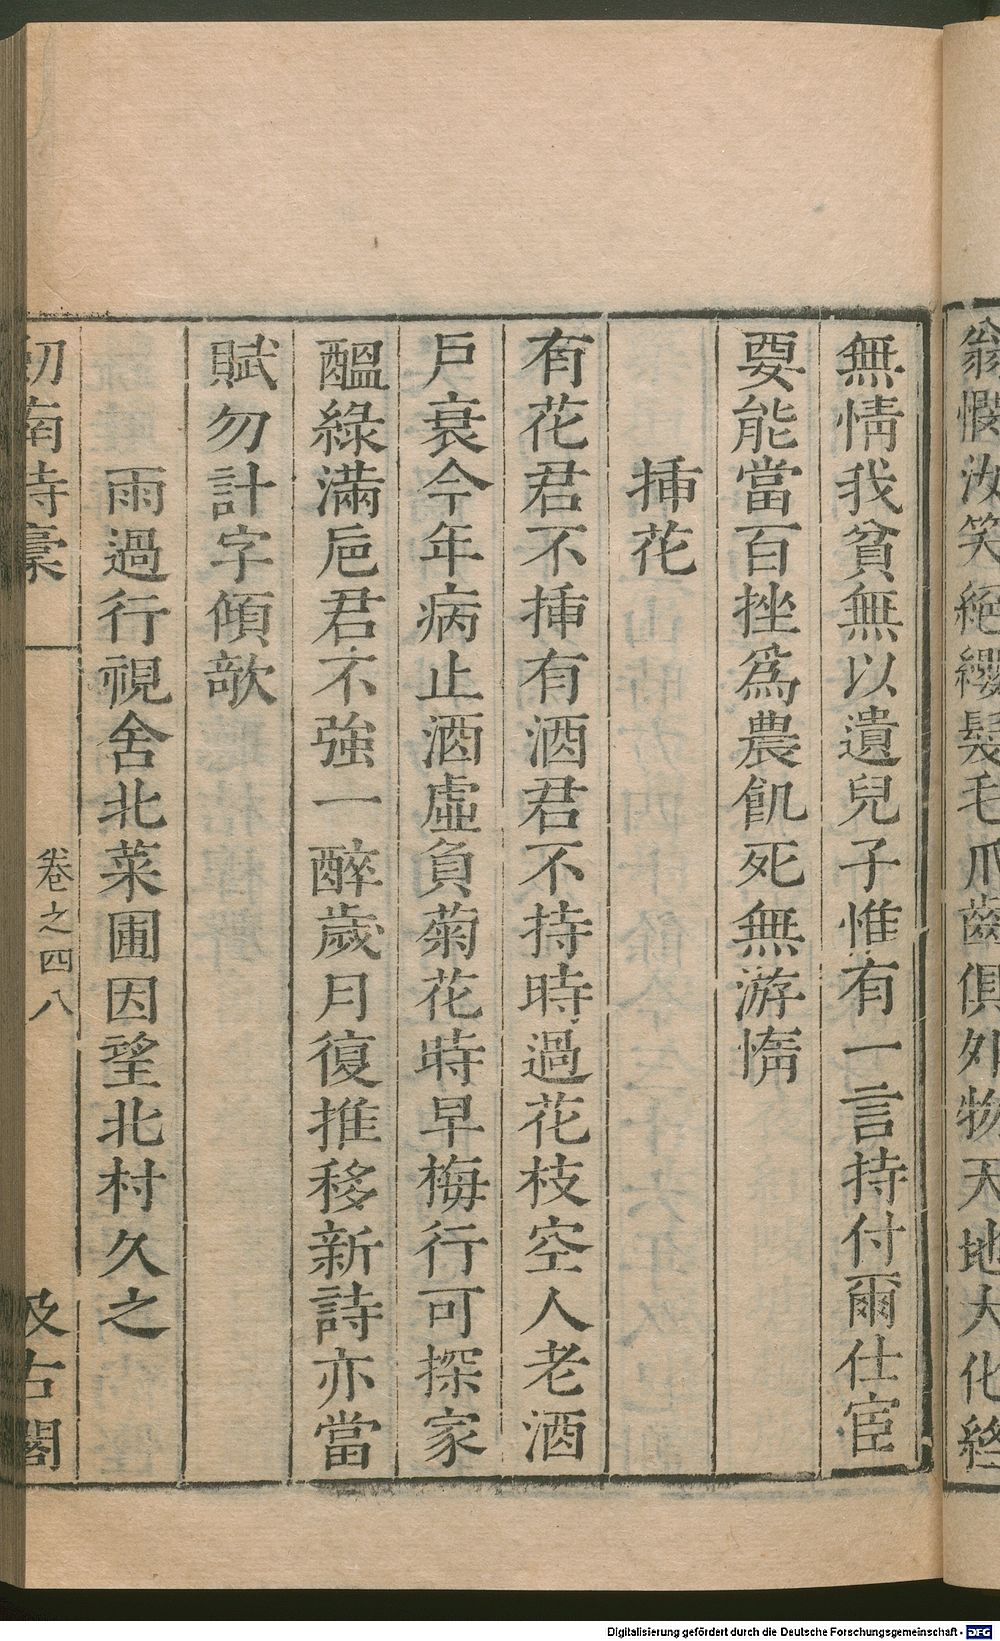 翁憫汝笑絕纓髮毛爪齒俱外物天地大化終
無情我貧無以遺兒子惟有一言持付爾仕宦
要能當百挫爲農飢死無游惰
挿花
有花君不挿有酒君不持時過花枝空人老酒
戶衰今年病止酒虛負菊花時早梅行可探家
醞綠滿巵君不強一醉歲月復推移新詩亦當
賦勿計字傾欹
雨過行視舍北菜圃因望北村久之
劒南詩藁
卷之四八
汲古閣
Digitalisierung gefördert durch die Deutsche Forschungsgemeinschaft - DFG